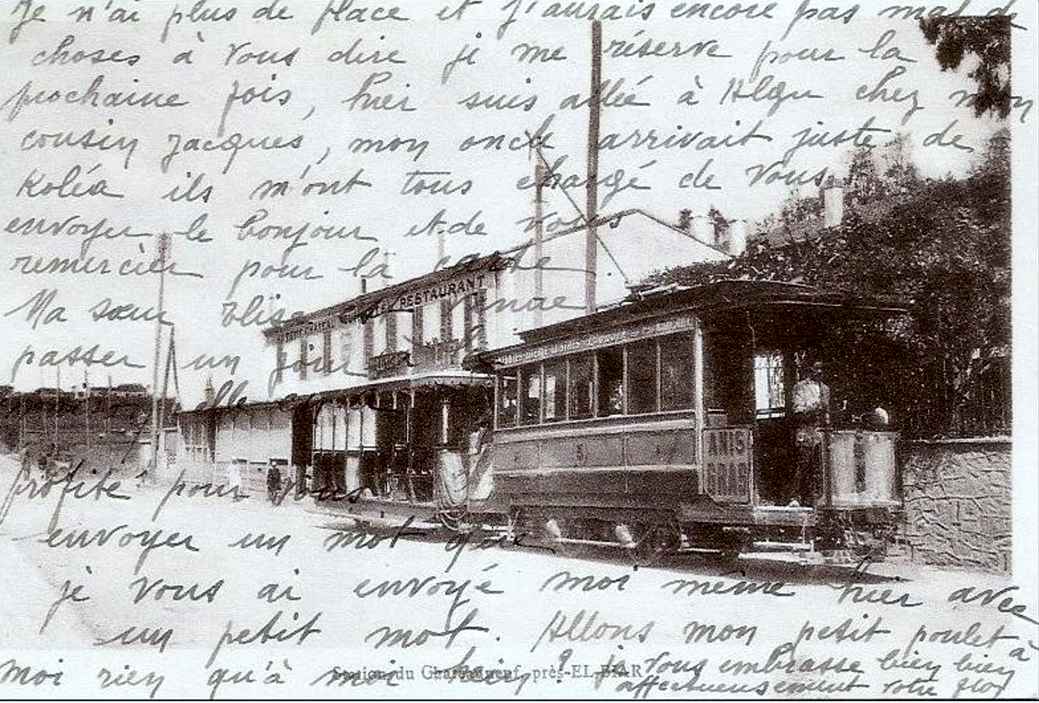 Je n'ai plus de place et j'aurais encore pas mal de
choses à vous dire je me réserve pour la
prochaine fois, hier suis allée à Alger chez mon
cousin Jacques, mon oncle arrivait juste de
Koléa ils m'ont tous chargé de vous
envoyer le bonjour et de vous
remercier pour la carte
Ma sœur Elise
RESTAURANT
passer un jour
ANIS
profité pour vous
envoyer un mot que
je vous ai envoyé moi même hier avec
un petit mot. Allons mon petit poulet à
moi rien qu'à moi hein? je vous embrasse bien bien
affectueusement votre
Station du Chateauneuf, près-EL-BIAR